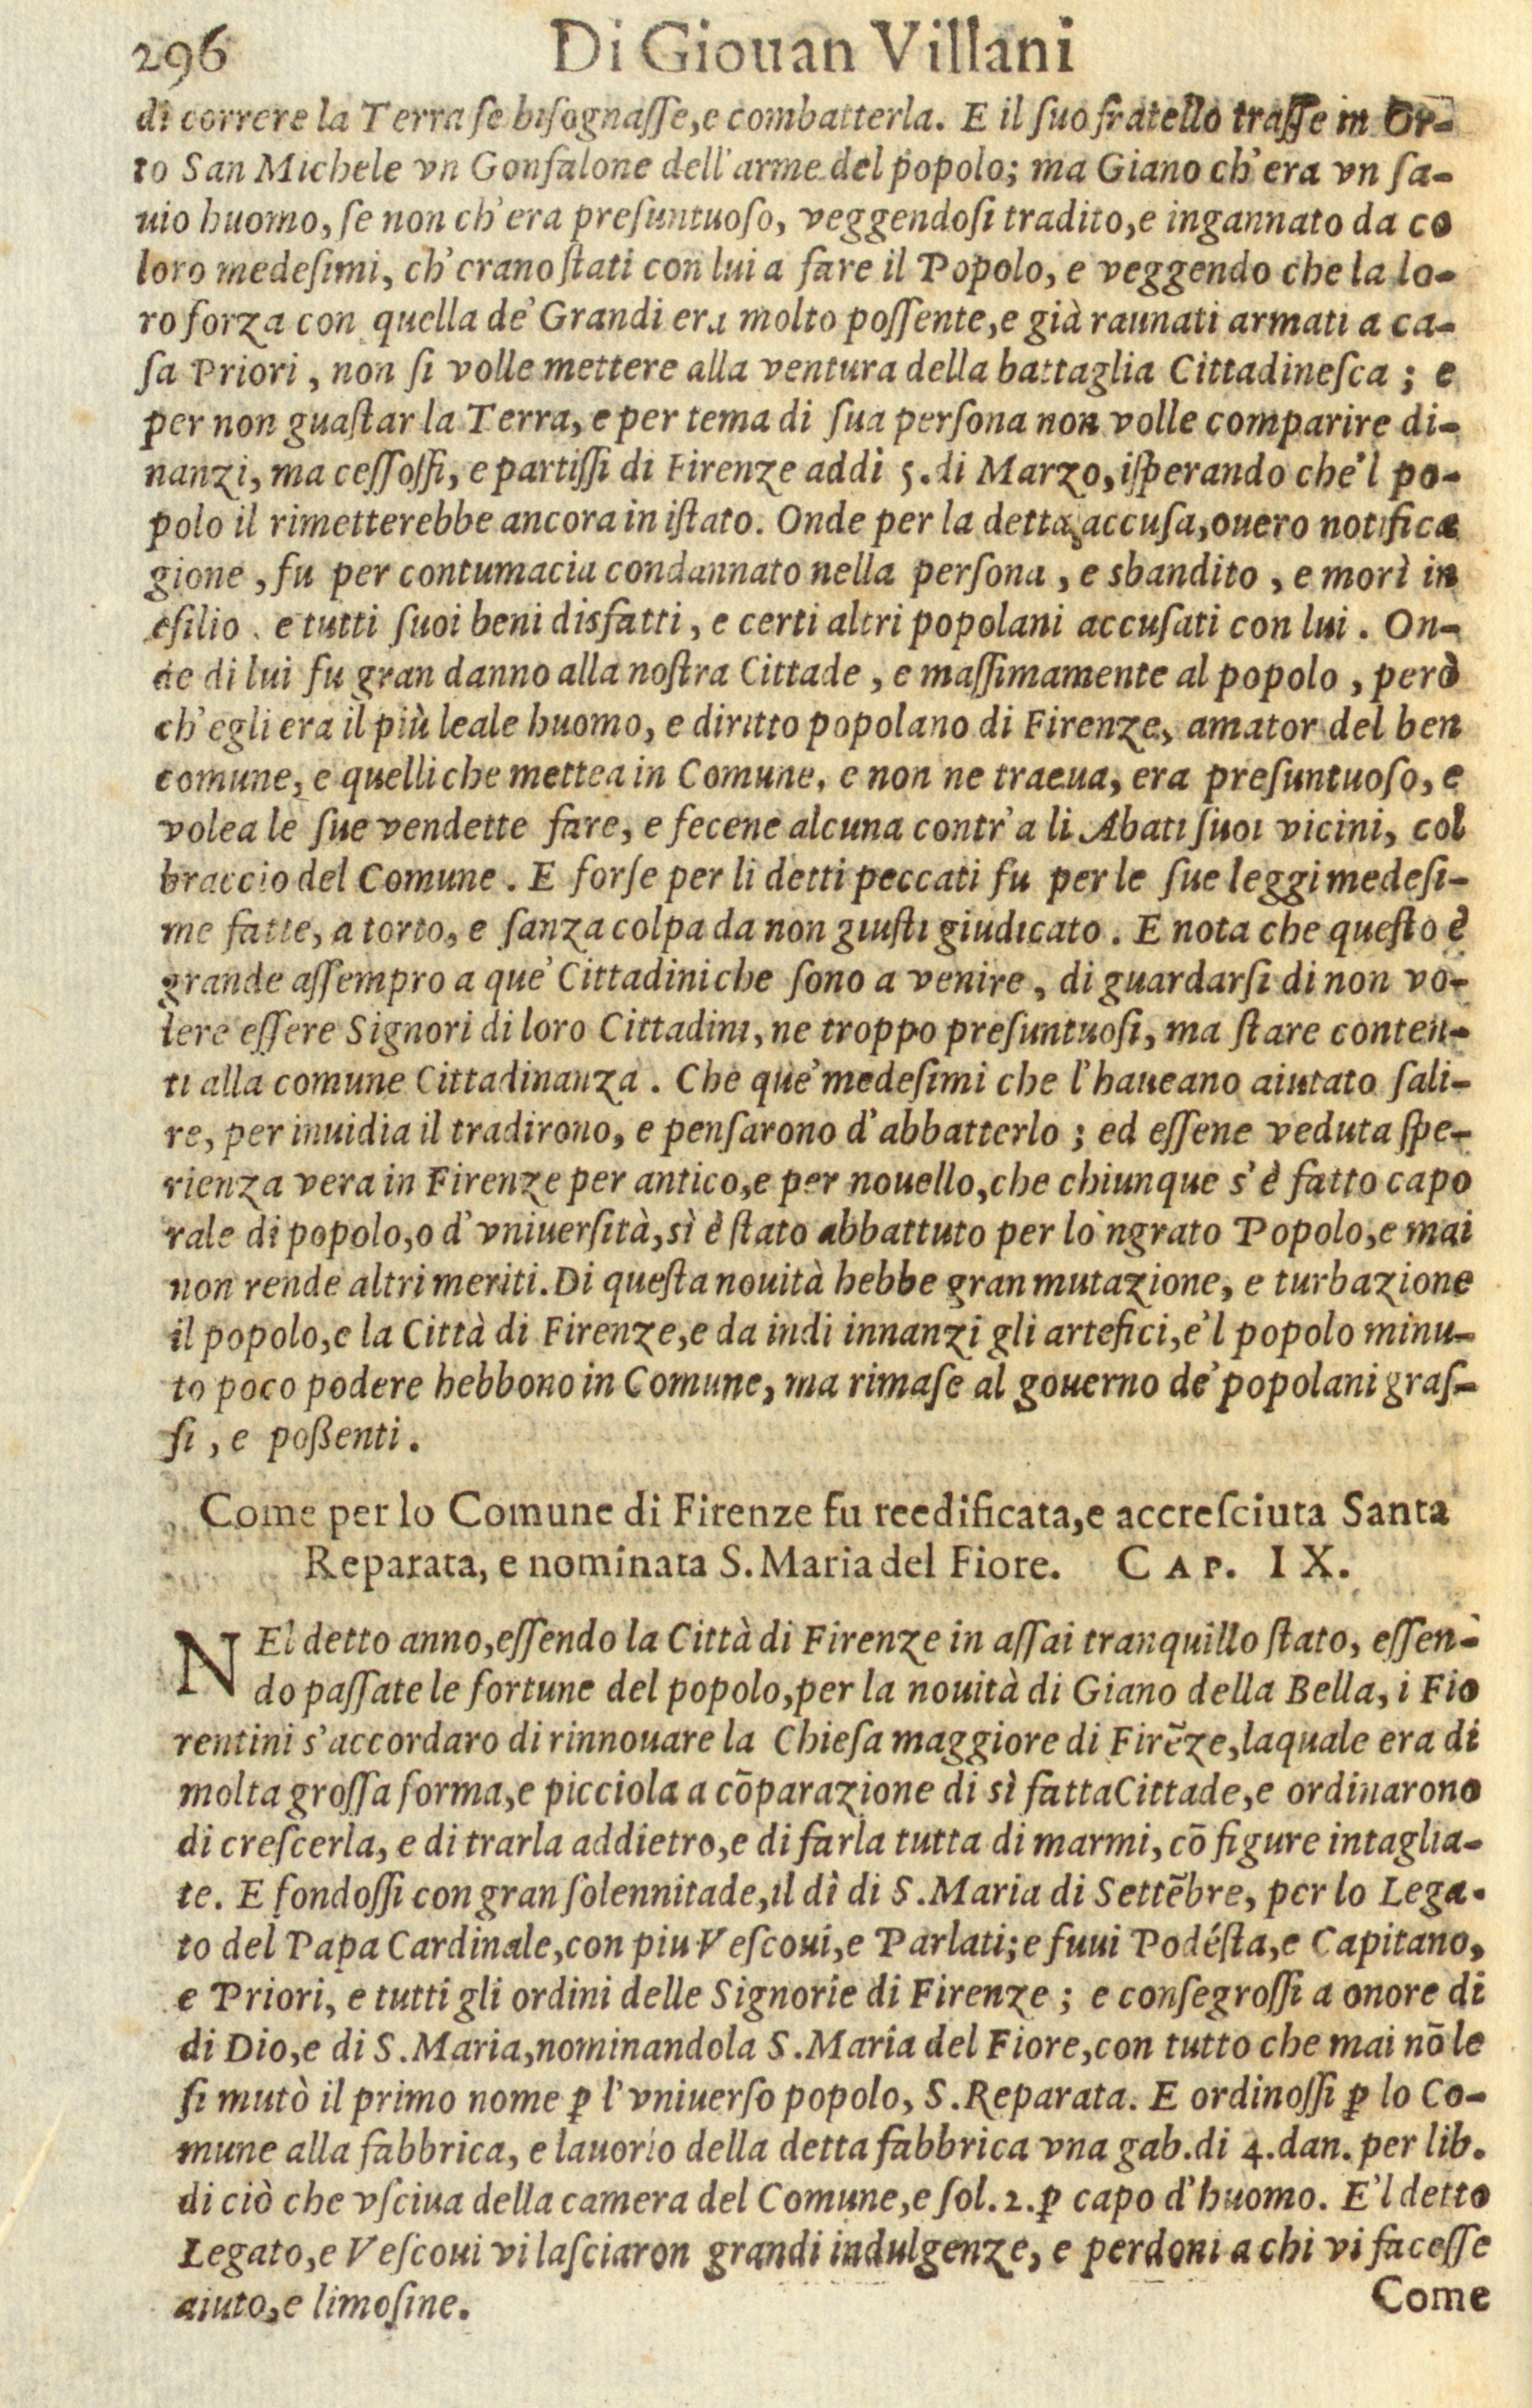 296 Di Giouan Villani
di correre la Terra se bisognasse, e combatterla. E il suo fratello trasse in Or-
to San Michele vn Gonfalone dell'arme del popolo; ma Giano ch'era vn sa-
uio huomo, se non ch'era presuntuoso, veggendosi tradito, e ingannato da co
loro medesimi, ch'erano stati con lui a fare il Popolo, e veggendo che la lo-
ro forza con quella de' Grandi era molto possente, e già raunati armati a ca-
sa Priori, non si volle mettere alla ventura della battaglia Cittadinesca; e
per non guastar la Terra, e per tema di sua persona non volle comparire di-
nanzi, ma cessossi, e partissi di Firenze addì 5. di Marzo, isperando che'l po-
polo il rimetterebbe ancora in istato. Onde per la detta accusa, ouero notifica
gione, fu per contumacia condannato nella persona, e sbandito, e morì in
esilio. e tutti suoi beni disfatti, e certi altri popolani accusati con lui. On-
de di lui fu gran danno alla nostra Cittade, e massimamente al popolo, però
ch'egli era il più leale huomo, e diritto popolano di Firenze, amator del ben
comune, e quelli che mettea in Comune, e non ne traeua, era presuntuoso, e
volea le sue vendette fare, e fecene alcuna contr'a li Abati suoi vicini, col
braccio del Comune. E forse per li detti peccati fu per le sue leggi medesi-
me fatte, a torto, e sanza colpa da non giusti giudicato. E nota che questo è
grande assempro a que' Cittadini che sono a venire, di guardarsi di non vo-
lere essere Signori di loro Cittadini, ne troppo presuntuosi, ma stare conten-
ti alla comune Cittadinanza. Che que' medesimi che l'haueano aiutato sali-
re, per inuidia il tradirono, e pensarono d'abbatterlo; ed essene veduta spe-
rienza vera in Firenze per antico, e per nouello, che chiunque s'è fatto capo
rale di popolo, o d'vniuersità, sì è stato abbattuto per lo 'ngrato Popolo, e mai
non rende altri meriti. Di questa nouità hebbe gran mutazione, e turbazione
il popolo, e la Città di Firenze, e da indi innanzi gli artefici, e'l popolo minu-
to poco podere hebbono in Comune, ma rimase al gouerno de' popolani gras-
si, e poßenti.
Come per lo Comune di Firenze fu reedificata, e accresciuta Santa
Reparata, e nominata S. Maria del Fiore. CAP. IX.
NEl detto anno, essendo la Città di Firenze in assai tranquillo stato, essen-
do passate le fortune del popolo, per la nouità di Giano della Bella, i Fio
rentini s'accordaro di rinnouare la Chiesa maggiore di Firẽze, laquale era di
molta grossa forma, e picciola a cõparazione di sì fatta Cittade, e ordinarono
di crescerla, e di trarla addietro, e di farla tutta di marmi, cõ figure intaglia-
te. E fondossi con gran solennitade, il dì di S. Maria di Settẽbre, per lo Lega-
to del Papa Cardinale, con piu Vescoui, e Parlati; e fuui Podésta, e Capitano,
e Priori, e tutti gli ordini delle Signorie di Firenze; e consegrossi a onore di
di Dio, e di S. Maria, nominandola S. Maria del Fiore, con tutto che mai nõ le
si mutò il primo nome ꝑ l'vniuerso popolo, S. Reparata. E ordinossi ꝑ lo Co-
mune alla fabbrica, e lauorio della detta fabbrica vna gab. di 4. dan. per lib.
di ciò che vsciua della camera del Comune, e sol. 2. ꝑ capo d'huomo. E'l detto
Legato, e Vescoui vi lasciaron grandi indulgenze, e perdoni a chi vi facesse
aiuto, e limosine.
Come